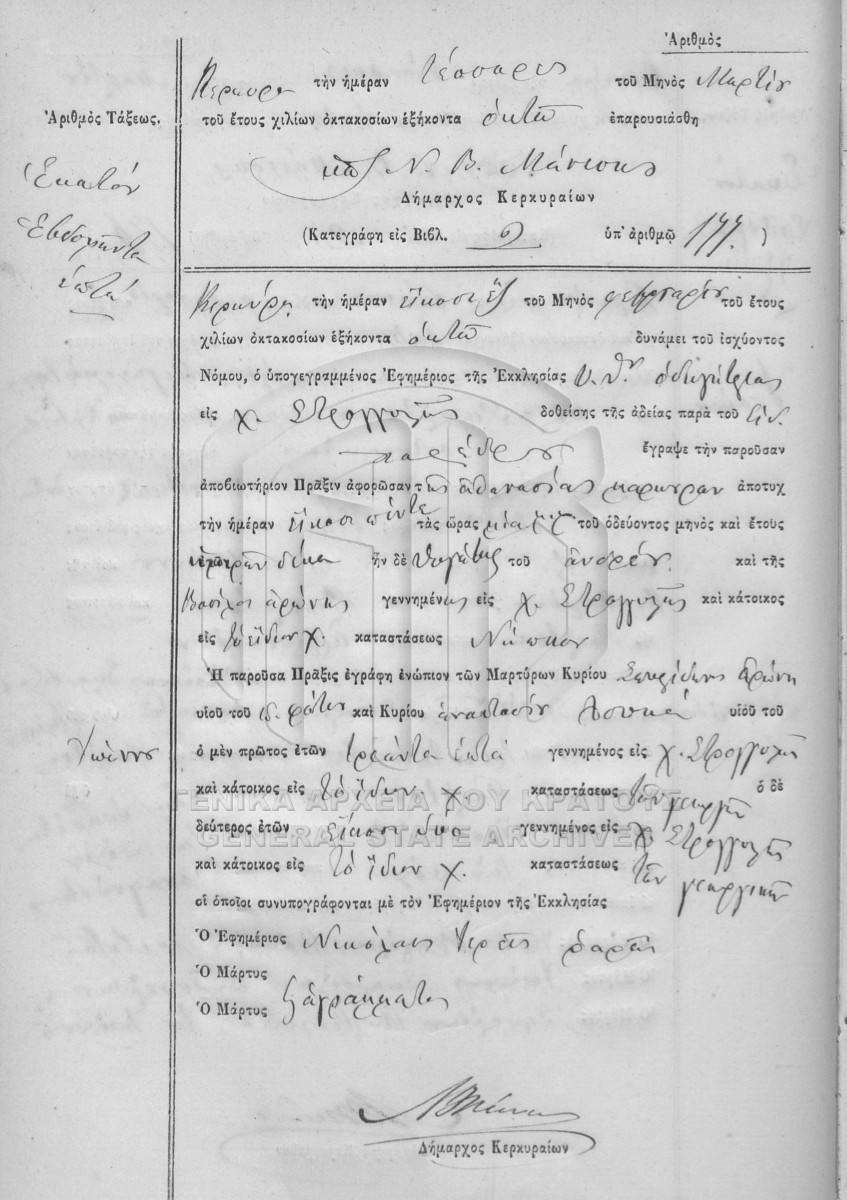 Ἀριθμὸς
Κερκυρα τὴν ἡμέραν τέσσαρες τοῦ Μηνὸς Μαρτίου
Ἀριθμὸς Τάξεως.
τοῦ ἔτους χιλίων ὀκτακοσίων ἑξήκοντα ὀκτὼ ἐπαρουσιάσθη
Ν. Β. Μάνεσης
Ἑκατὸν
Δήμαρχος Κερκυραίων
Ἑβδομῆντα
(Κατεγράφη εἰς Βιβλ. 2 ὑπ' ἀριθμῷ 177.)
ἑπτά
Κερκύρᾳ τὴν ἡμέραν εἴκοσι ἓξ τοῦ Μηνὸς φεβρουαρίου τοῦ ἔτους
χιλίων ὀκτακοσίων ἑξήκοντα ὀκτὼ δυνάμει τοῦ ἰσχύοντος
Νόμου, ὁ ὑπογεγραμμένος Ἐφημέριος τῆς Ἐκκλησίας ὁδηγήτριας
εἰς χ. Στρογγυλῆς δοθείσης τῆς ἀδείας παρὰ τοῦ
παρέδρου ἔγραψε τὴν παροῦσαν
ἀποβιωτήριον Πρᾶξιν ἀφορῶσαν τῆς ἀθανασίας ἀποτυχ
τὴν ἡμέραν εἴκοσι πέντε τὰς ὥρας μία τοῦ ὁδεύοντος μηνὸς καὶ ἔτους
δέκα ἦν δὲ θυγάτης τοῦ ἀνδρέου καὶ τῆς
γεννημένης εἰς χ. Στρογγυλῆς καὶ κάτοικος
εἰς τὸ ἴδιον χ. καταστάσεως Νήπιον
Ἡ παροῦσα Πρᾶξις ἐγράφη ἐνώπιον τῶν Μαρτύρων Κυρίου Σπυρίδωνος ἀρώνη
υἱοῦ τοῦ καὶ Κυρίου ἀναστασίου υἱοῦ τοῦ
Ἰωάννου
ὁ μὲν πρῶτος ἐτῶν τριάντα ἑπτὰ γεννημένος εἰς χ. Στρογγυλῆς
καὶ κάτοικος εἰς τὸ ἴδιον χ. καταστάσεως τῶν γεωργῶν ὁ δὲ
δεύτερος ἐτῶν εἴκοσι δυο γεννημένος εἰς χ. Στρογγυλῆς
καὶ κάτοικος εἰς τὸ ἴδιον χ. καταστάσεως τῶν γεωργικῶν
οἱ ὁποῖοι συνυπογράφονται μὲ τὸν Ἐφημέριον τῆς Ἐκκλησίας
Ὁ Ἐφημέριος Νικόλαος Ἱερεὺς
Ὁ Μάρτυς
Ὁ Μάρτυς ἀγράμματος
Δήμαρχος Κερκυραίων
ΓΕΝΙΚΑ ΑΡΧΕΙΑ ΤΟΥ ΚΡΑΤΟΥΣ
GENERAL STATE ARCHIVES